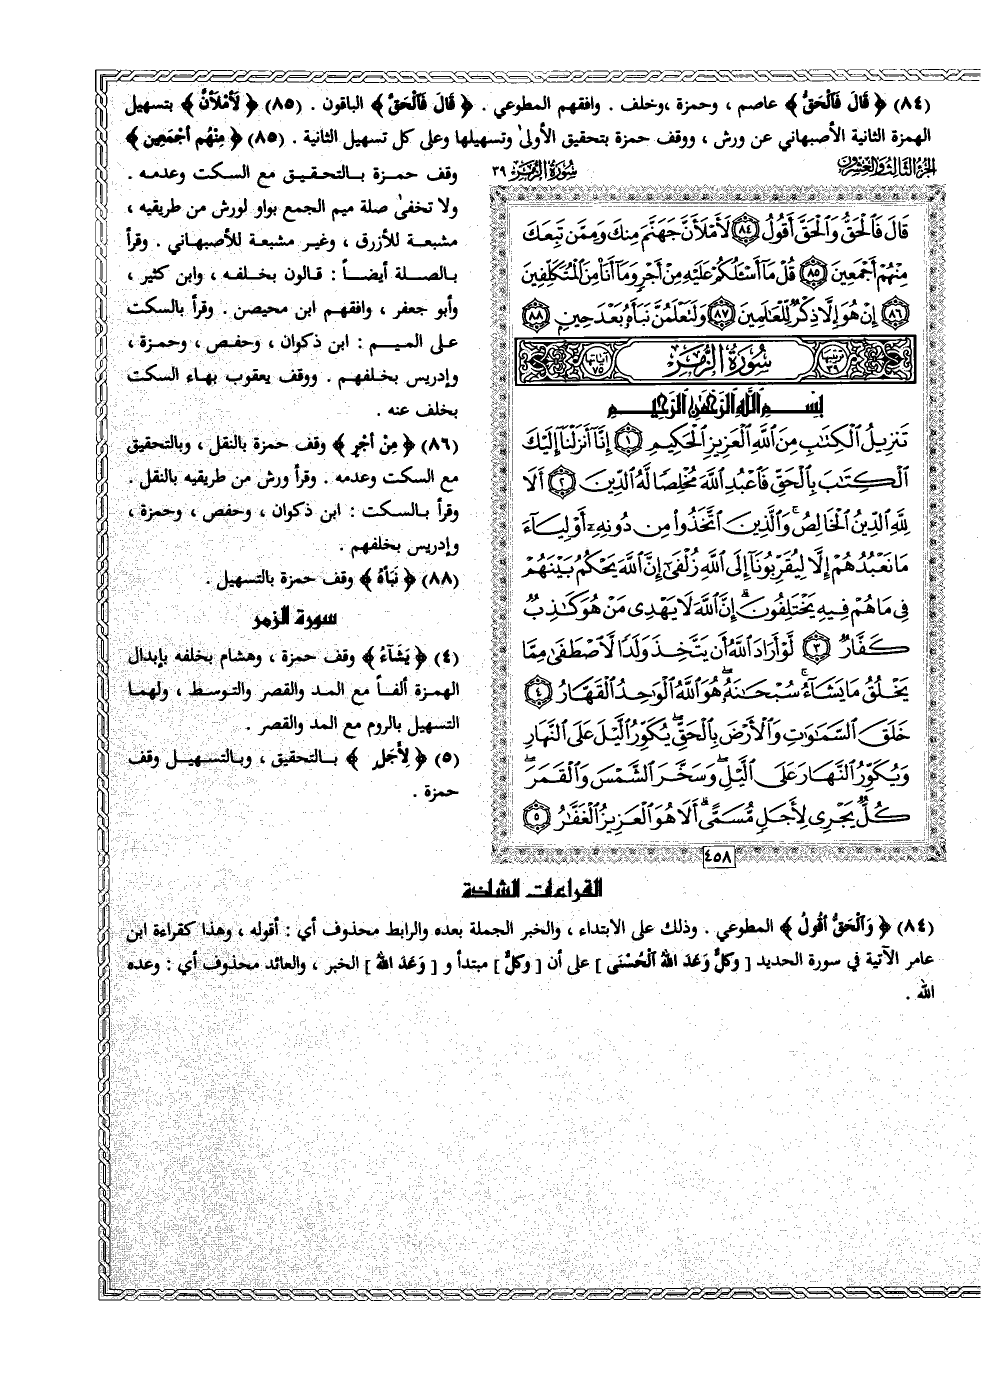 (٨٤) ﴿ قَالَ فَٱلْحَقُّ ﴾ عاصم ، وحمزة ،وخلف . وافقهم المطوعي . ﴿ قَالَ فَٱلْحَقَّ ﴾ الباقون . (٨٥) ﴿ لَأَمْلَأَنَّ ﴾ بتسهيل
الهمزة الثانية الأصبهاني عن ورش ، ووقف حمزة بتحقيق الأولىٰ وتسهيلها وعلى كل تسهيل الثانية . (٨٥) ﴿ مِنْهُم أَجْمَعِين ﴾
وقف حمزة بالتحقيق مع السكت وعدمه .
ولا تخفىٰ صلة ميم الجمع بواو لورش من طريقيه ،
مشبعة للأزرق ، وغير مشبعة للأصبهاني . وقرأ
بالصلة أيضاً : قالون بخلفه ، وابن كثير ،
وأبو جعفر ، وافقهم ابن محيصن . وقرأ بالسكت
على الميم : ابن ذكوان ، وحفص ، وحمزة ،
وإدريس بخلفهم . ووقف يعقوب بهاء السكت
بخلف عنه .
(٨٦) ﴿ مِنْ أَجْرٍ ﴾ وقف حمزة بالنقل ، وبالتحقيق
مع السكت وعدمه . وقرأ ورش من طريقيه بالنقل .
وقرأ بالسكت : ابن ذكوان ، وحفص ، وحمزة ،
وإدريس بخلفهم .
(٨٨) ﴿ نَبَأَهُ ﴾ وقف حمزة بالتسهيل .
سورة الزمر
(٤) ﴿ يَشَآءُ ﴾ وقف حمزة ، وهشام بخلفه بإبدال
الهمزة ألفاً مع المد والقصر والتوسط ، ولهما
التسهيل بالروم مع المد والقصر .
(٥) ﴿ لِأَجَلٍ ﴾ بالتحقيق ، وبالتسهيل وقف
حمزة .
الجزء الثالث والعشرون
سورة الزمر ٣٩
قَالَ فَٱلْحَقُّ وَٱلْحَقَّ أَقُولُ ٨٤ لَأَمْلَأَنَّ جَهَنَّمَ مِنكَ وَمِمَّن تَبِعَكَ
مِنْهُمْ أَجْمَعِينَ ٨٥ قُلْ مَآ أَسْـَٔلُكُمْ عَلَيْهِ مِنْ أَجْرٍ وَمَآ أَنَا۠ مِنَ ٱلْمُتَكَلِّفِينَ
٨٦ إِنْ هُوَ إِلَّا ذِكْرٌ لِّلْعَٰلَمِينَ ٨٧ وَلَتَعْلَمُنَّ نَبَأَهُۥ بَعْدَ حِينٍۭ ٨٨
ترتيبها ٣٩ سُورَةُ الزُّمَرِ آياتها ٧٥
بِسْمِ ٱللَّهِ ٱلرَّحْمَٰنِ ٱلرَّحِيمِ
تَنزِيلُ ٱلْكِتَٰبِ مِنَ ٱللَّهِ ٱلْعَزِيزِ ٱلْحَكِيمِ ١ إِنَّآ أَنزَلْنَآ إِلَيْكَ
ٱلْكِتَٰبَ بِٱلْحَقِّ فَٱعْبُدِ ٱللَّهَ مُخْلِصًا لَّهُ ٱلدِّينَ ٢ أَلَا
لِلَّهِ ٱلدِّينُ ٱلْخَالِصُ ۚ وَٱلَّذِينَ ٱتَّخَذُوا۟ مِن دُونِهِۦٓ أَوْلِيَآءَ
مَا نَعْبُدُهُمْ إِلَّا لِيُقَرِّبُونَآ إِلَى ٱللَّهِ زُلْفَىٰٓ إِنَّ ٱللَّهَ يَحْكُمُ بَيْنَهُمْ
فِى مَا هُمْ فِيهِ يَخْتَلِفُونَ ۗ إِنَّ ٱللَّهَ لَا يَهْدِى مَنْ هُوَ كَٰذِبٌ
كَفَّارٌ ٣ لَّوْ أَرَادَ ٱللَّهُ أَن يَتَّخِذَ وَلَدًا لَّٱصْطَفَىٰ مِمَّا
يَخْلُقُ مَا يَشَآءُ ۚ سُبْحَٰنَهُۥ ۖ هُوَ ٱللَّهُ ٱلْوَٰحِدُ ٱلْقَهَّارُ ٤
خَلَقَ ٱلسَّمَٰوَٰتِ وَٱلْأَرْضَ بِٱلْحَقِّ ۖ يُكَوِّرُ ٱلَّيْلَ عَلَى ٱلنَّهَارِ
وَيُكَوِّرُ ٱلنَّهَارَ عَلَى ٱلَّيْلِ ۖ وَسَخَّرَ ٱلشَّمْسَ وَٱلْقَمَرَ ۖ
كُلٌّ يَجْرِى لِأَجَلٍ مُّسَمًّى ۗ أَلَا هُوَ ٱلْعَزِيزُ ٱلْغَفَّٰرُ ٥
٤٥٨
القراءات الشاذة
(٨٤) ﴿ وَٱلْحَقُّ أَقُولُ ﴾ المطوعي . وذلك على الابتداء ، والخبر الجملة بعده والرابط محذوف أي : أقوله ، وهذا كقراءة ابن
عامر الآتية في سورة الحديد [ وَكُلٌّ وَعَدَ اللهُ ٱلْحُسْنَى ] على أن [ وَكُلٌّ ] مبتدأ و [ وَعَدَ اللهُ ] الخبر ، والعائد محذوف أي : وعده
الله .